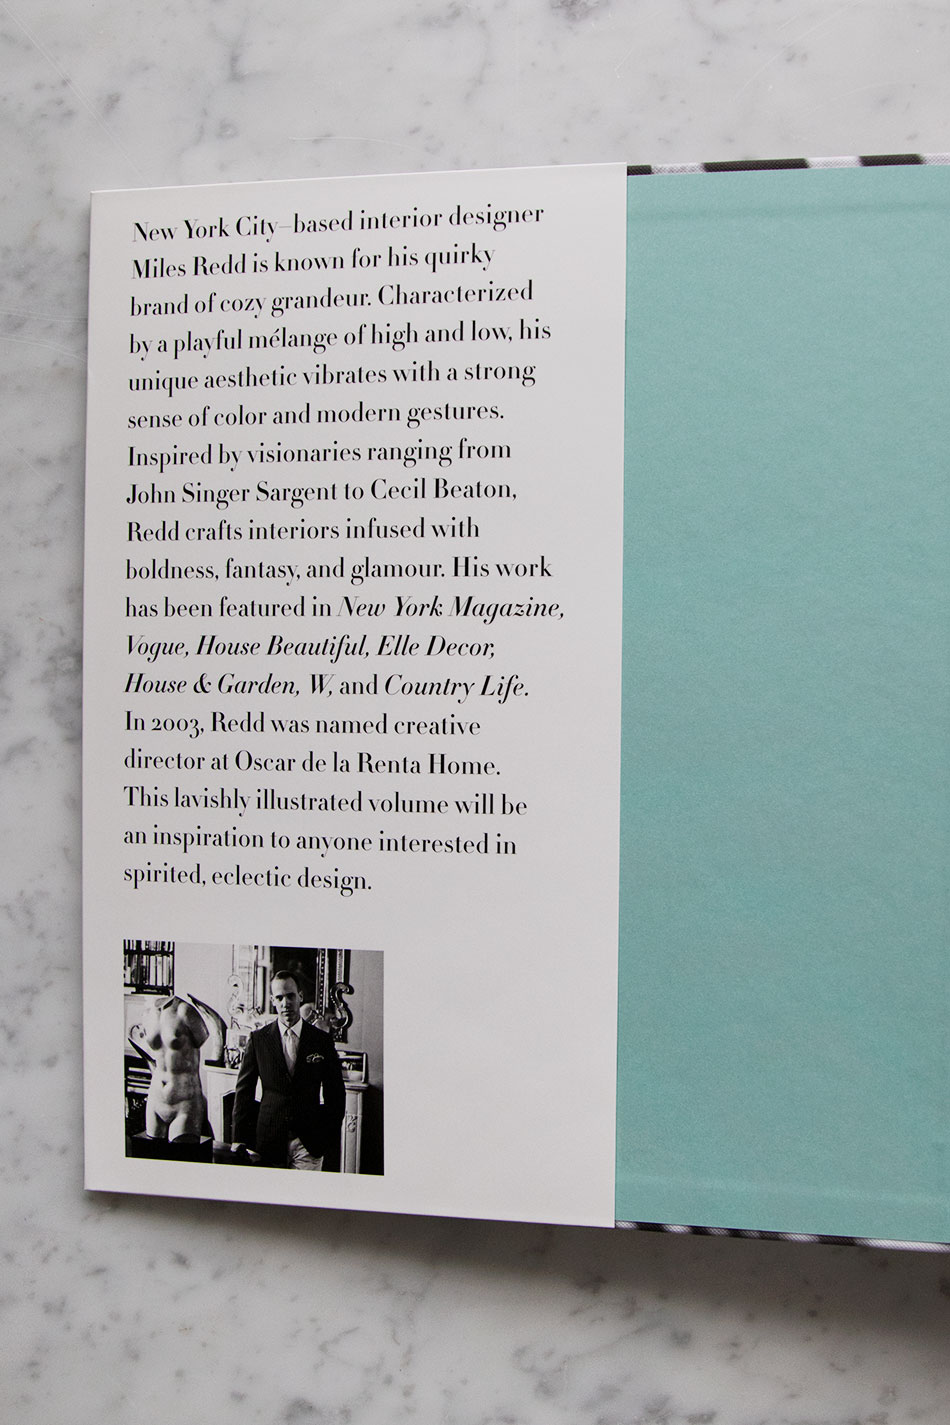 New York City–based interior designer
Miles Redd is known for his quirky
brand of cozy grandeur. Characterized
by a playful mélange of high and low, his
unique aesthetic vibrates with a strong
sense of color and modern gestures.
Inspired by visionaries ranging from
John Singer Sargent to Cecil Beaton,
Redd crafts interiors infused with
boldness, fantasy, and glamour. His work
has been featured in New York Magazine,
Vogue, House Beautiful, Elle Decor,
House & Garden, W, and Country Life.
In 2003, Redd was named creative
director at Oscar de la Renta Home.
This lavishly illustrated volume will be
an inspiration to anyone interested in
spirited, eclectic design.